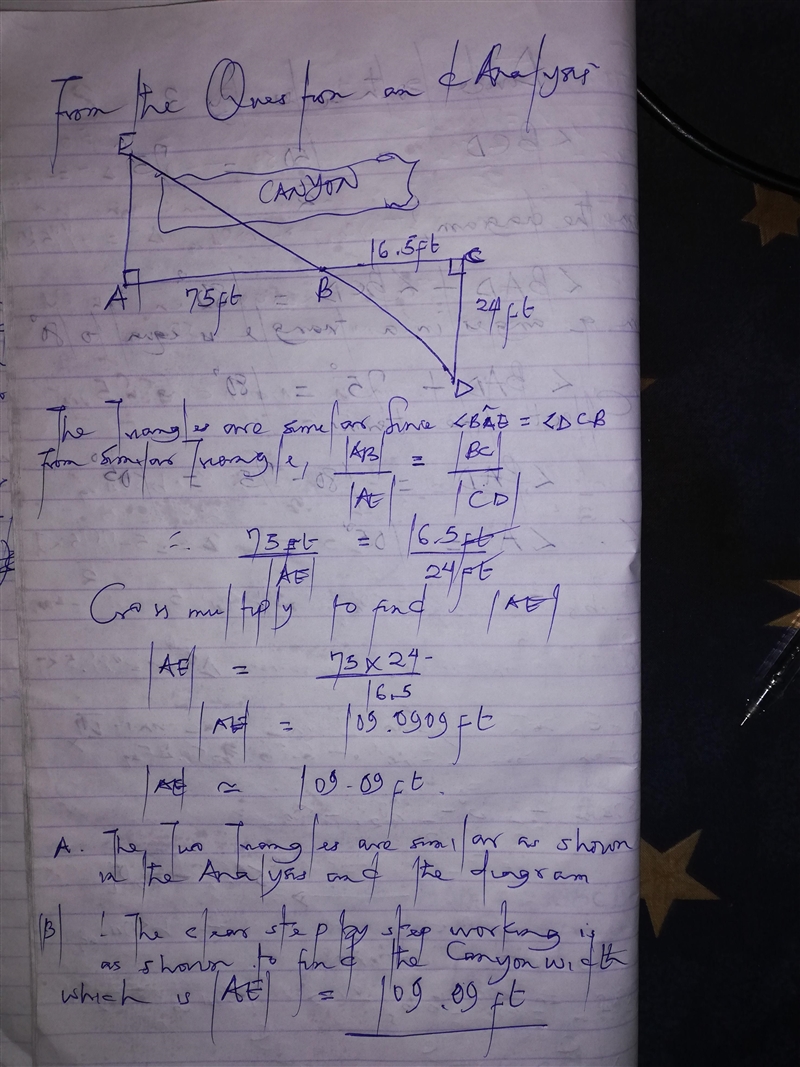 From the Question and Analysis
E
CANYON
16.5ft
C
A
75ft
B
24ft
D
The Triangles are similar since <BÂE = <DCB
From Similar Triangle, |AB| / |AE| = |BC| / |CD|
∴ 75ft / |AE| = 16.5ft / 24ft
Cross multiply to find |AE|
|AE| = 75 x 24 / 16.5
|AE| = 109.0909ft
|AE| ≈ 109.09ft.
A. The Two Triangles are similar as shown
in the Analysis and the diagram
(B) The clear step by step working is
as shown to find the Canyon width
which is |AE| = 109.09ft